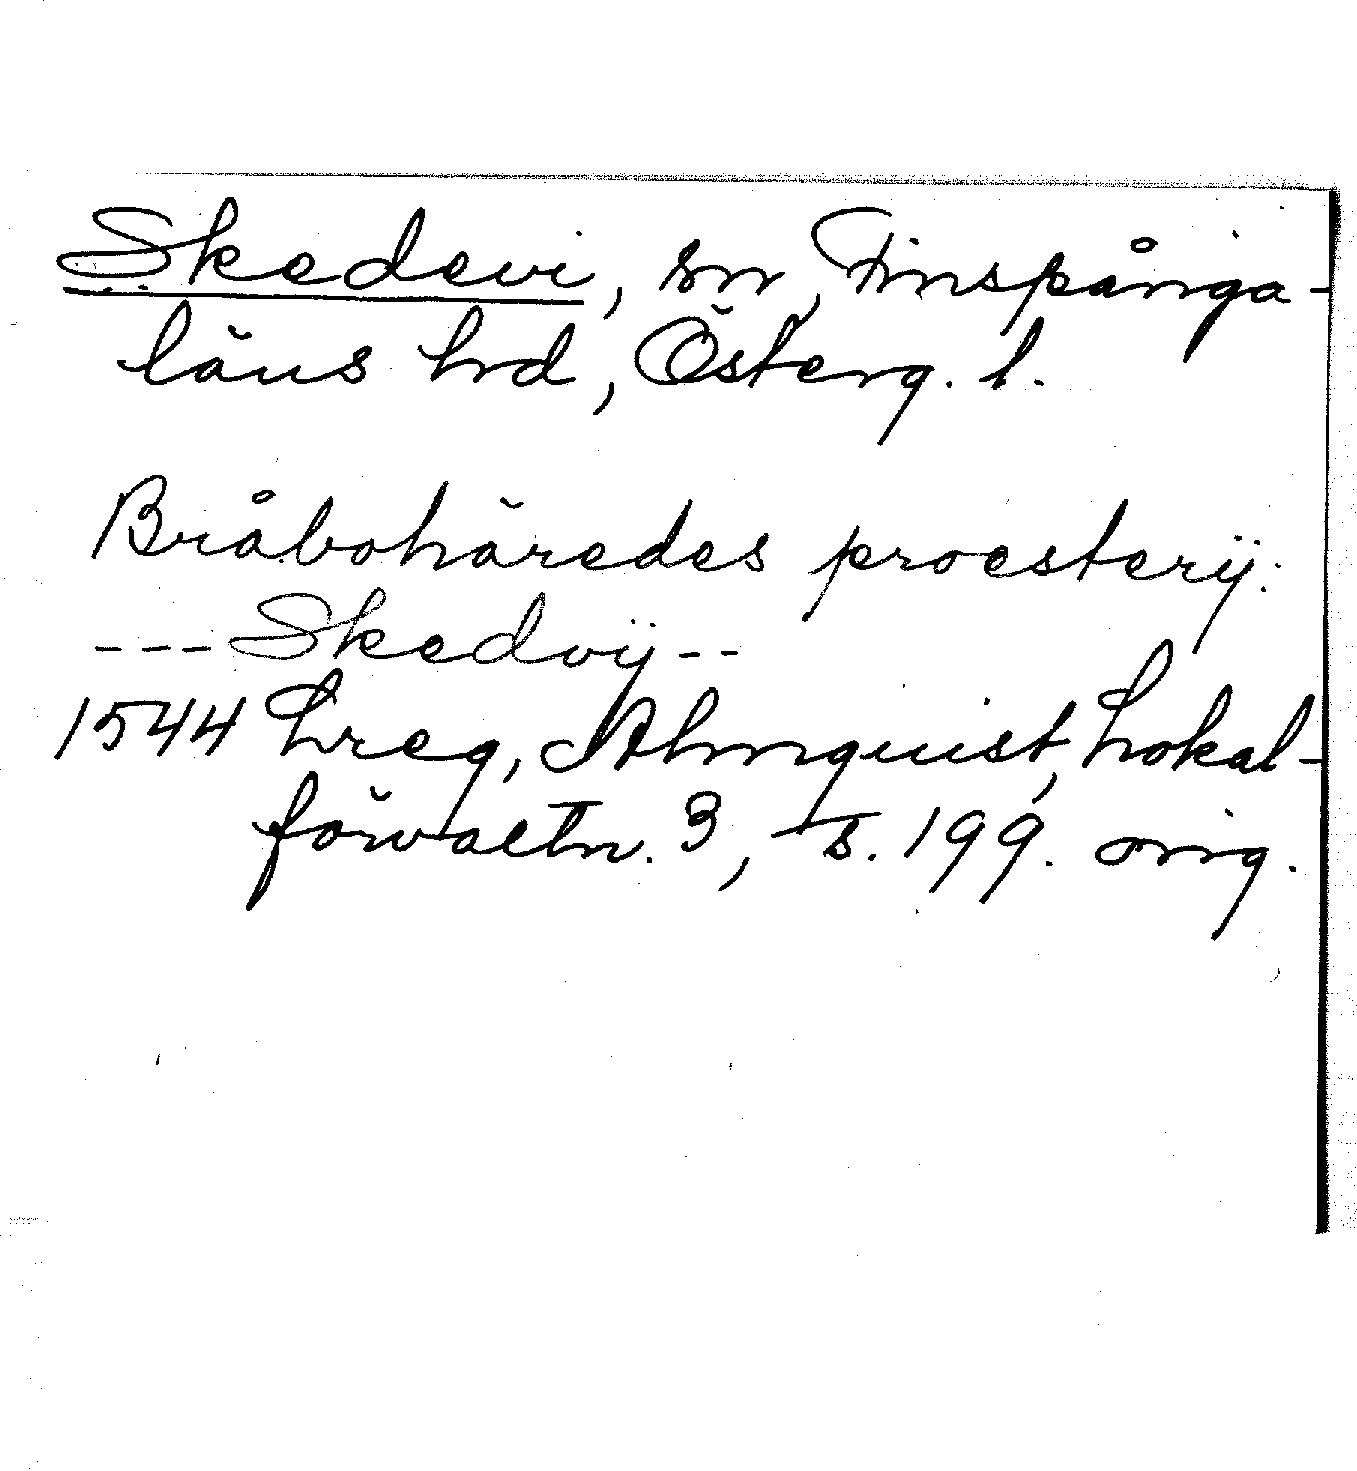 Skedevi, sn, Finspånga-
läns hd, Österg. l.
Bråbohäredes proesterÿ:
---Skedvÿ--
1544 Lreg, Almquist, Lokal-
förvaltn. 3, s. 199. orig.